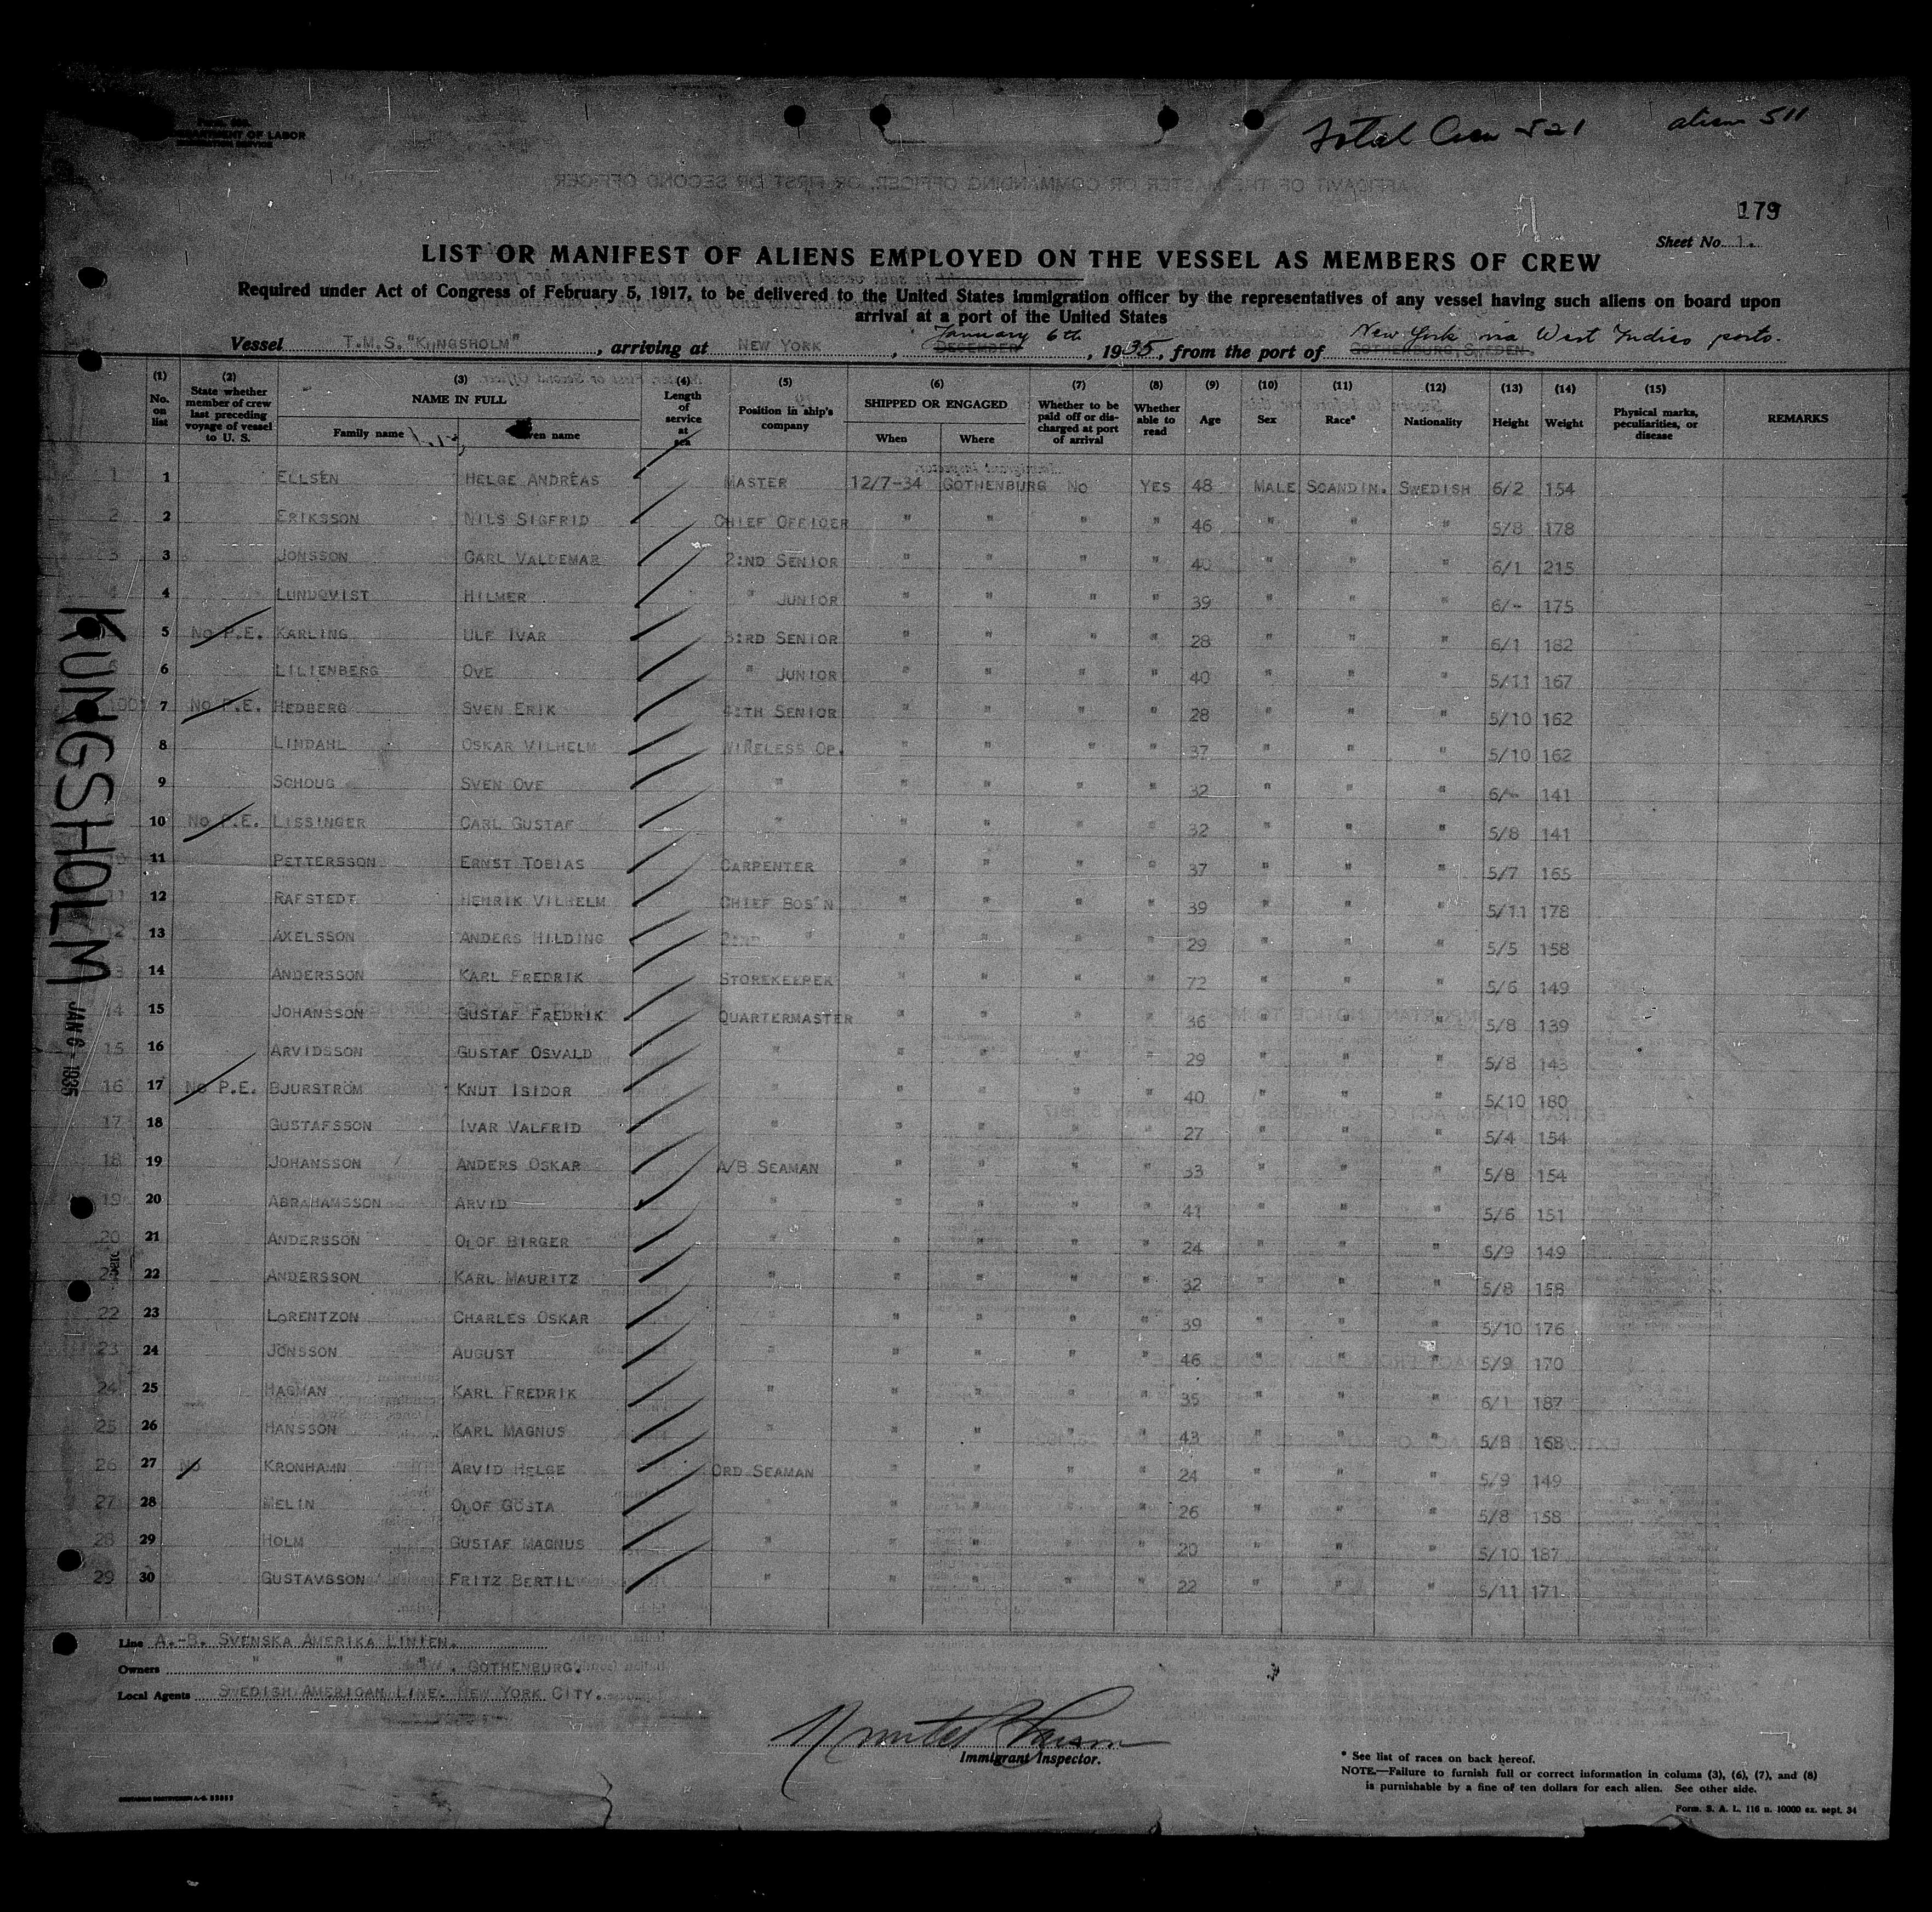 DEPARTMENT OF LABOR
Total Crew 521 alien 511
179
Sheet No. 1.
LIST OR MANIFEST OF ALIENS EMPLOYED ON THE VESSEL AS MEMBERS OF CREW
Required under Act of Congress of February 5, 1917, to be delivered to the United States immigration officer by the representatives of any vessel having such aliens on board upon
arrival at a port of the United States
January 6th New York via West Indies ports.
Vessel T.M.S. "KUNGSHOLM", arriving at NEW YORK, DECEMBER, 1935, from the port of GOTHENBURG, SWEDEN.
(1) No. on list (2) State whether member of crew last preceding voyage of vessel to U. S. (3) NAME IN FULL Family name Given name (4) Length of service at sea (5) Position in ship's company (6) SHIPPED OR ENGAGED When Where (7) Whether to be paid off or discharged at port of arrival (8) Whether able to read (9) Age (10) Sex (11) Race* (12) Nationality (13) Height (14) Weight (15) Physical marks, peculiarities, or disease REMARKS
1 1 ELLSEN HELGE ANDREAS MASTER 12/7-34 GOTHENBURG NO YES 48 MALE SCANDIN. SWEDISH 6/2 154
2 2 ERIKSSON NILS SIGFRID CHIEF OFFICER " " " " 46 " " " 5/8 178
3 3 JONSSON CARL VALDEMAR 2:ND SENIOR " " " " 40 " " " 6/1 215
4 4 LUNDQVIST HILMER " JUNIOR " " " " 39 " " " 6/- 175
5 NO P.E. KARLING ULF IVAR 3:RD SENIOR " " " " 28 " " " 6/1 182
6 LILIENBERG OVE " JUNIOR " " " " 40 " " " 5/11 167
7 NO P.E. HEDBERG SVEN ERIK 4:TH SENIOR " " " " 28 " " " 5/10 162
8 LINDAHL OSKAR VILHELM WIRELESS OP. " " " " 37 " " " 5/10 162
9 SCHOUG SVEN OVE " " " " " 32 " " " 6/- 141
10 NO P.E. LISSINGER CARL GUSTAF " " " " " 32 " " " 5/8 141
10 11 PETTERSSON ERNST TOBIAS CARPENTER " " " " 37 " " " 5/7 165
11 12 RAFSTEDT HENRIK VILHELM CHIEF BOS'N " " " " 39 " " " 5/11 178
12 13 AXELSSON ANDERS HILDING 2:ND " " " " " 29 " " " 5/5 158
13 14 ANDERSSON KARL FREDRIK STOREKEEPER " " " " 72 " " " 5/6 149
14 15 JOHANSSON GUSTAF FREDRIK QUARTERMASTER " " " " 36 " " " 5/8 139
15 16 ARVIDSSON GUSTAF OSVALD " " " " " 29 " " " 5/8 143
16 17 NO P.E. BJURSTRÖM KNUT ISIDOR " " " " " 40 " " " 5/10 180
17 18 GUSTAFSSON IVAR VALFRID " " " " " 27 " " " 5/4 154
18 19 JOHANSSON ANDERS OSKAR A/B SEAMAN " " " " 33 " " " 5/8 154
19 20 ABRAHAMSSON ARVID " " " " " 41 " " " 5/6 151
20 21 ANDERSSON OLOF BIRGER " " " " " 24 " " " 5/9 149
21 22 ANDERSSON KARL MAURITZ " " " " " 32 " " " 5/8 158
22 23 LORENTZON CHARLES OSKAR " " " " " 39 " " " 5/10 176
23 24 JÖNSSON AUGUST " " " " " 46 " " " 5/9 170
24 25 HAGMAN KARL FREDRIK " " " " " 35 " " " 6/1 187
25 26 HANSSON KARL MAGNUS " " " " " 43 " " " 5/8 168
26 27 NO KRONHAMN ARVID HELGE ORD SEAMAN " " " " 24 " " " 5/9 149
27 28 MELIN OLOF GÖSTA " " " " " 26 " " " 5/8 158
28 29 HOLM GUSTAF MAGNUS " " " " " 20 " " " 5/10 187
29 30 GUSTAVSSON FRITZ BERTIL " " " " " 22 " " " 5/11 171
KUNGSHOLM
JAN 6 - 1935
Line A.-B. SVENSKA AMERIKA LINIEN.
Owners " " " . GOTHENBURG.
Local Agents SWEDISH AMERICAN LINE. NEW YORK CITY.
Immigrant Inspector.
* See list of races on back hereof.
NOTE.—Failure to furnish full or correct information in colums (3), (6), (7), and (8)
is punishable by a fine of ten dollars for each alien. See other side.
Form. S. A. L. 116 n. 10000 ex. sept. 34